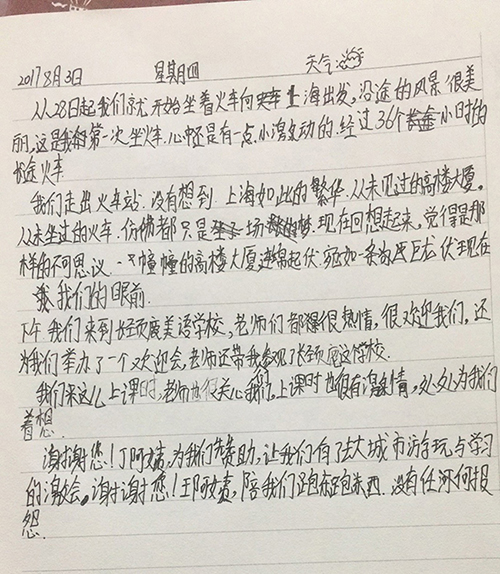 2017 8月3日 星期四 天气:
从28日起我们就开始坐着火车向上海出发,沿途的风景很美
丽,这是我的第一次坐火车.心中还是有一点小激动的.经过36个小时的
长途火车
我们走出火车站.没有想到上海如此的繁华.从未见过的高楼大厦.
从未坐过的火车.仿佛都只是一场梦.现在回想起来,觉得是那
样的不可思议.一幢幢的高楼大厦连绵起伏.宛如一条巨龙伏现在
我们的眼前.
下午我们来到长颈鹿美语学校,老师们都很热情,很欢迎我们,还
为我们举办了一个欢迎会,老师还带我参观了长颈鹿这学校.
我们来这儿上课时,老师也很关心我们,上课时也很有激情,处处为我们
着想.
谢谢您!丁阿姨,为我们赞助,让我们有了去大城市游玩与学习
的机会。谢谢您!阿姨,陪我们跑东跑西.没有任何报
怨.